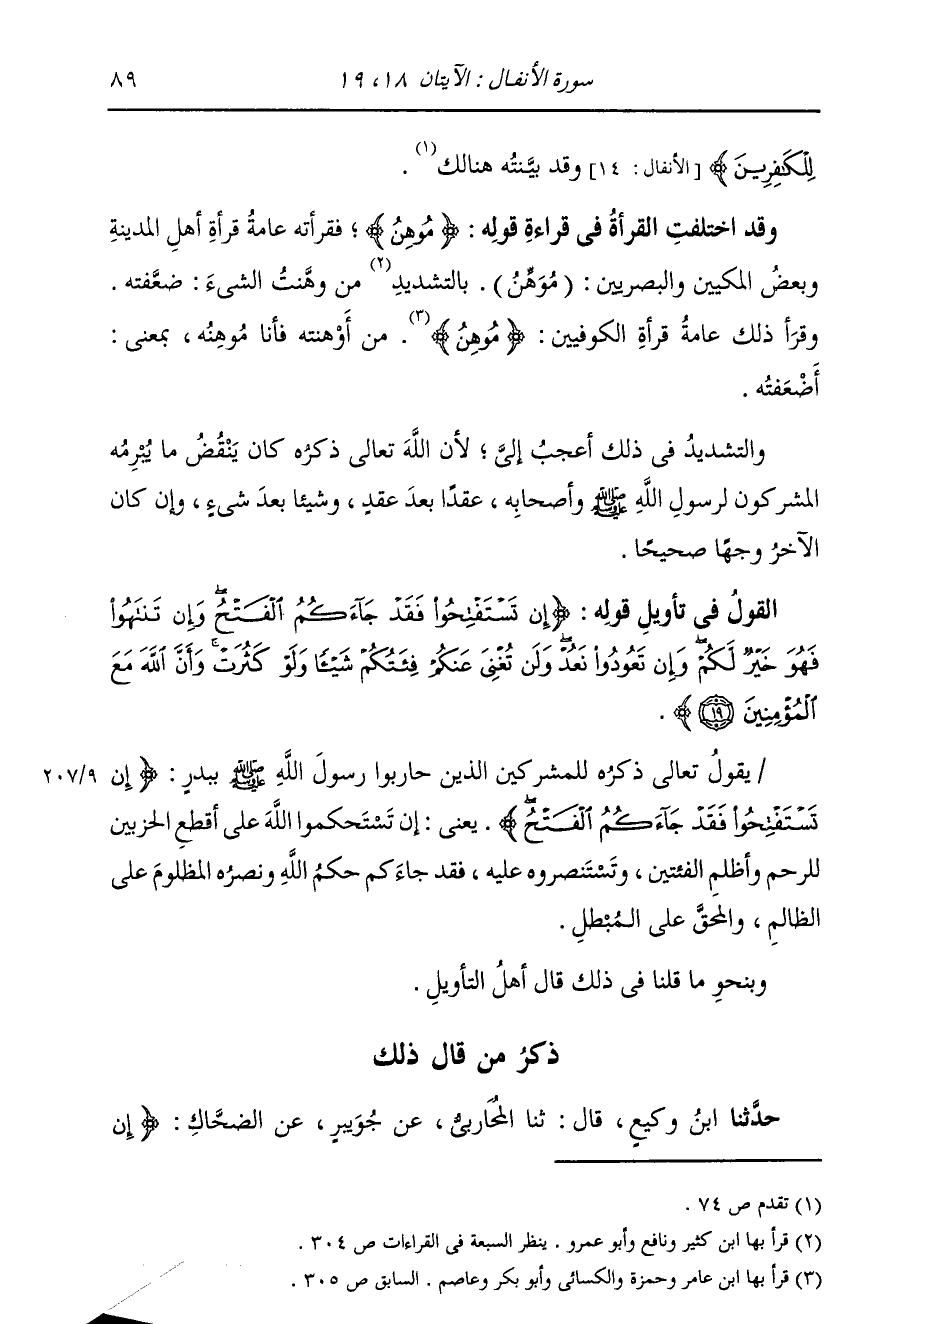 سورة الأنفال : الآيتان ١٨، ١٩ ٨٩
لِلْكَٰفِرِينَ ﴾ [ الأنفال : ١٤] وقد بيَّنتُه هنالك(١) .
وقد اختلفتِ القرأةُ فى قراءةِ قولِه : ﴿ مُوهِنُ ﴾ ؛ فقرأته عامةُ قرأةِ أهلِ المدينةِ
وبعضُ المكيين والبصريين : ( مُوَهِّنُ ) . بالتشديدِ(٢) من وهَّنتُ الشىءَ : ضعَّفته .
وقرَأ ذلك عامةُ قرأةِ الكوفيين : ﴿ مُوهِنُ ﴾(٣) . من أَوْهنته فأنا مُوهِنُه ، بمعنى :
أَضْعَفتُه .
والتشديدُ فى ذلك أعجبُ إلىَّ ؛ لأن اللَّهَ تعالى ذكرُه كان يَنْقُضُ ما يُبْرِمُه
المشركون لرسولِ اللَّهِ ﷺ وأصحابِه ، عقدًا بعدَ عقدٍ ، وشيئا بعدَ شىءٍ ، وإن كان
الآخرُ وجهًا صحيحًا .
القولُ فى تأويلِ قولِه : ﴿ إِن تَسْتَفْتِحُوا۟ فَقَدْ جَآءَكُمُ ٱلْفَتْحُ ۖ وَإِن تَنتَهُوا۟
فَهُوَ خَيْرٌ لَّكُمْ ۖ وَإِن تَعُودُوا۟ نَعُدْ ۖ وَلَن تُغْنِىَ عَنكُمْ فِئَتُكُمْ شَيْـًٔا وَلَوْ كَثُرَتْ ۚ وَأَنَّ ٱللَّهَ مَعَ
ٱلْمُؤْمِنِينَ ١٩ ﴾ .
/ يقولُ تعالى ذكرُه للمشركين الذين حاربوا رسولَ اللَّهِ ﷺ ببدرٍ : ﴿ إِن ٢٠٧/٩
تَسْتَفْتِحُوا۟ فَقَدْ جَآءَكُمُ ٱلْفَتْحُ ۖ ﴾ . يعنى : إن تَسْتَحكموا اللَّهَ على أقطعِ الحزبين
للرحم وأظلمِ الفئتين ، وتَسْتَنصروه عليه ، فقد جاءَكم حكمُ اللَّهِ ونصرُه المظلومَ على
الظالمِ ، والمحقَّ على المُبْطلِ .
وبنحوِ ما قلنا فى ذلك قال أهلُ التأويلِ .
ذكرُ من قال ذلك
حدَّثنا ابنُ وكيعٍ ، قال : ثنا المُحاربىُّ ، عن جُوَيبرٍ ، عن الضحَّاكِ : ﴿ إِن
(١) تقدم ص ٧٤ .
(٢) قرأ بها ابن كثير ونافع وأبو عمرو . ينظر السبعة فى القراءات ص ٣٠٤ .
(٣) قرأ بها ابن عامر وحمزة والكسائى وأبو بكر وعاصم . السابق ص ٣٠٥ .